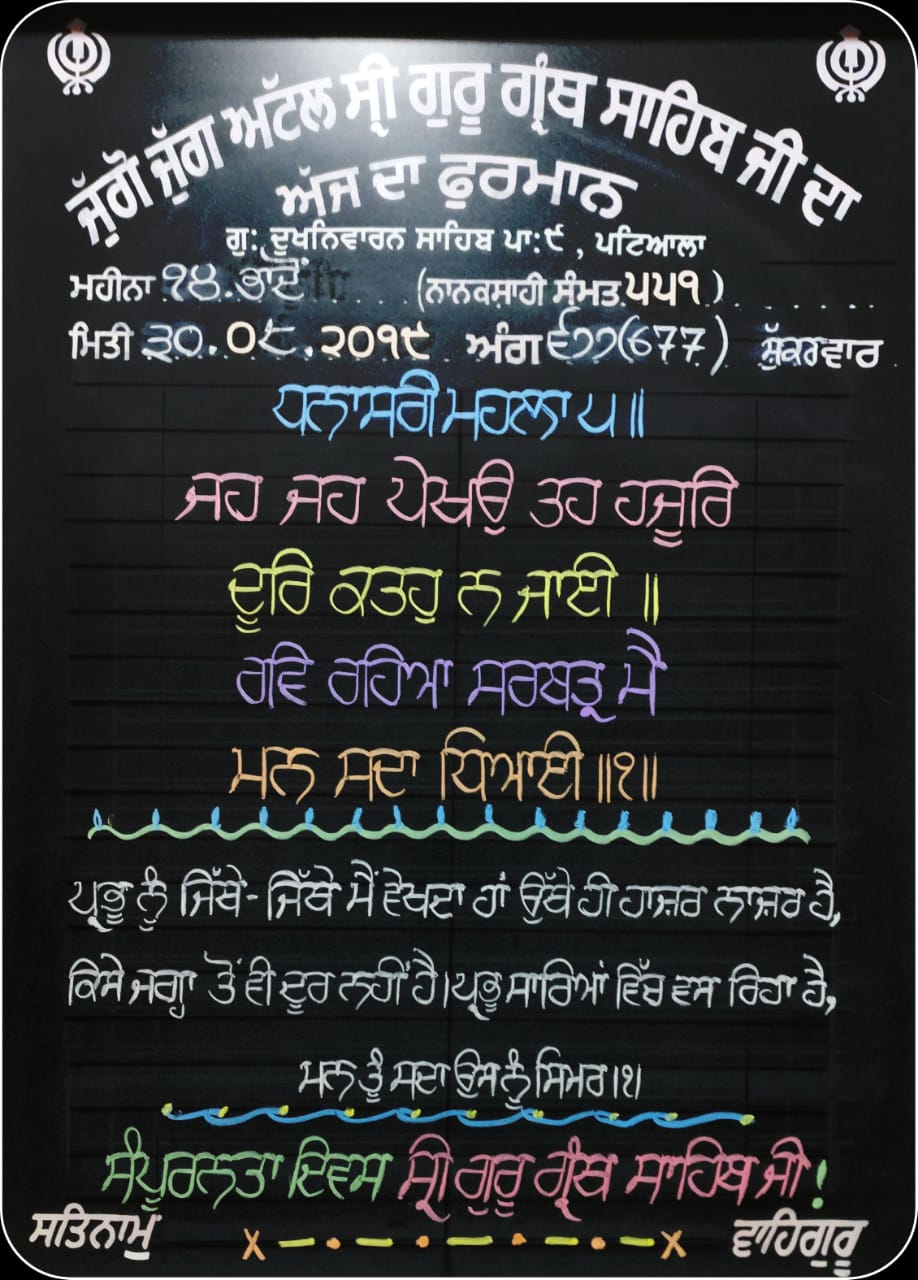 ਜੁੱਗੋ ਜੁੱਗ ਅੱਟਲ ਸ੍ਰੀ ਗੁਰੂ ਗ੍ਰੰਥ ਸਾਹਿਬ ਜੀ ਦਾ
ਅੱਜ ਦਾ ਫੁਰਮਾਨ
ਗੁ: ਦੂਖਨਿਵਾਰਨ ਸਾਹਿਬ ਪਾ:੯, ਪਟਿਆਲਾ
ਮਹੀਨਾ ੧੪.ਭਾਦੋਂ (ਨਾਨਕਸਾਹੀ ਸੰਮਤ ੫੫੧)
ਮਿਤੀ ੩੦.੦੮.੨੦੧੯ ਅੰਗ ੬੭੭(677) ਸ਼ੁੱਕਰਵਾਰ
ਧਨਾਸਰੀ ਮਹਲਾ ੫॥
ਜਹ ਜਹ ਪੇਖਉ ਤਹ ਹਜੂਰਿ
ਦੂਰਿ ਕਤਹੁ ਨ ਜਾਈ ॥
ਰਵਿ ਰਹਿਆ ਸਰਬਤ੍ਰ ਮੈ
ਮਨ ਸਦਾ ਧਿਆਈ ॥੧॥
ਪ੍ਰਭੂ ਨੂੰ ਜਿੱਥੇ-ਜਿੱਥੇ ਮੈਂ ਵੇਖਦਾ ਹਾਂ ਉੱਥੇ ਹੀ ਹਾਜ਼ਰ ਨਾਜ਼ਰ ਹੈ,
ਕਿਸੇ ਜਗ੍ਹਾ ਤੋਂ ਵੀ ਦੂਰ ਨਹੀਂ ਹੈ।ਪ੍ਰਭੂ ਸਾਰਿਆਂ ਵਿੱਚ ਵਸ ਰਿਹਾ ਹੈ,
ਮਨ ਤੂੰ ਸਦਾ ਉਸ ਨੂੰ ਸਿਮਰ।੧।
ਸੰਪੂਰਨਤਾ ਦਿਵਸ ਸ੍ਰੀ ਗੁਰੂ ਗ੍ਰੰਥ ਸਾਹਿਬ ਜੀ!
ਸਤਿਨਾਮੁ ਵਾਹਿਗੁਰੂ